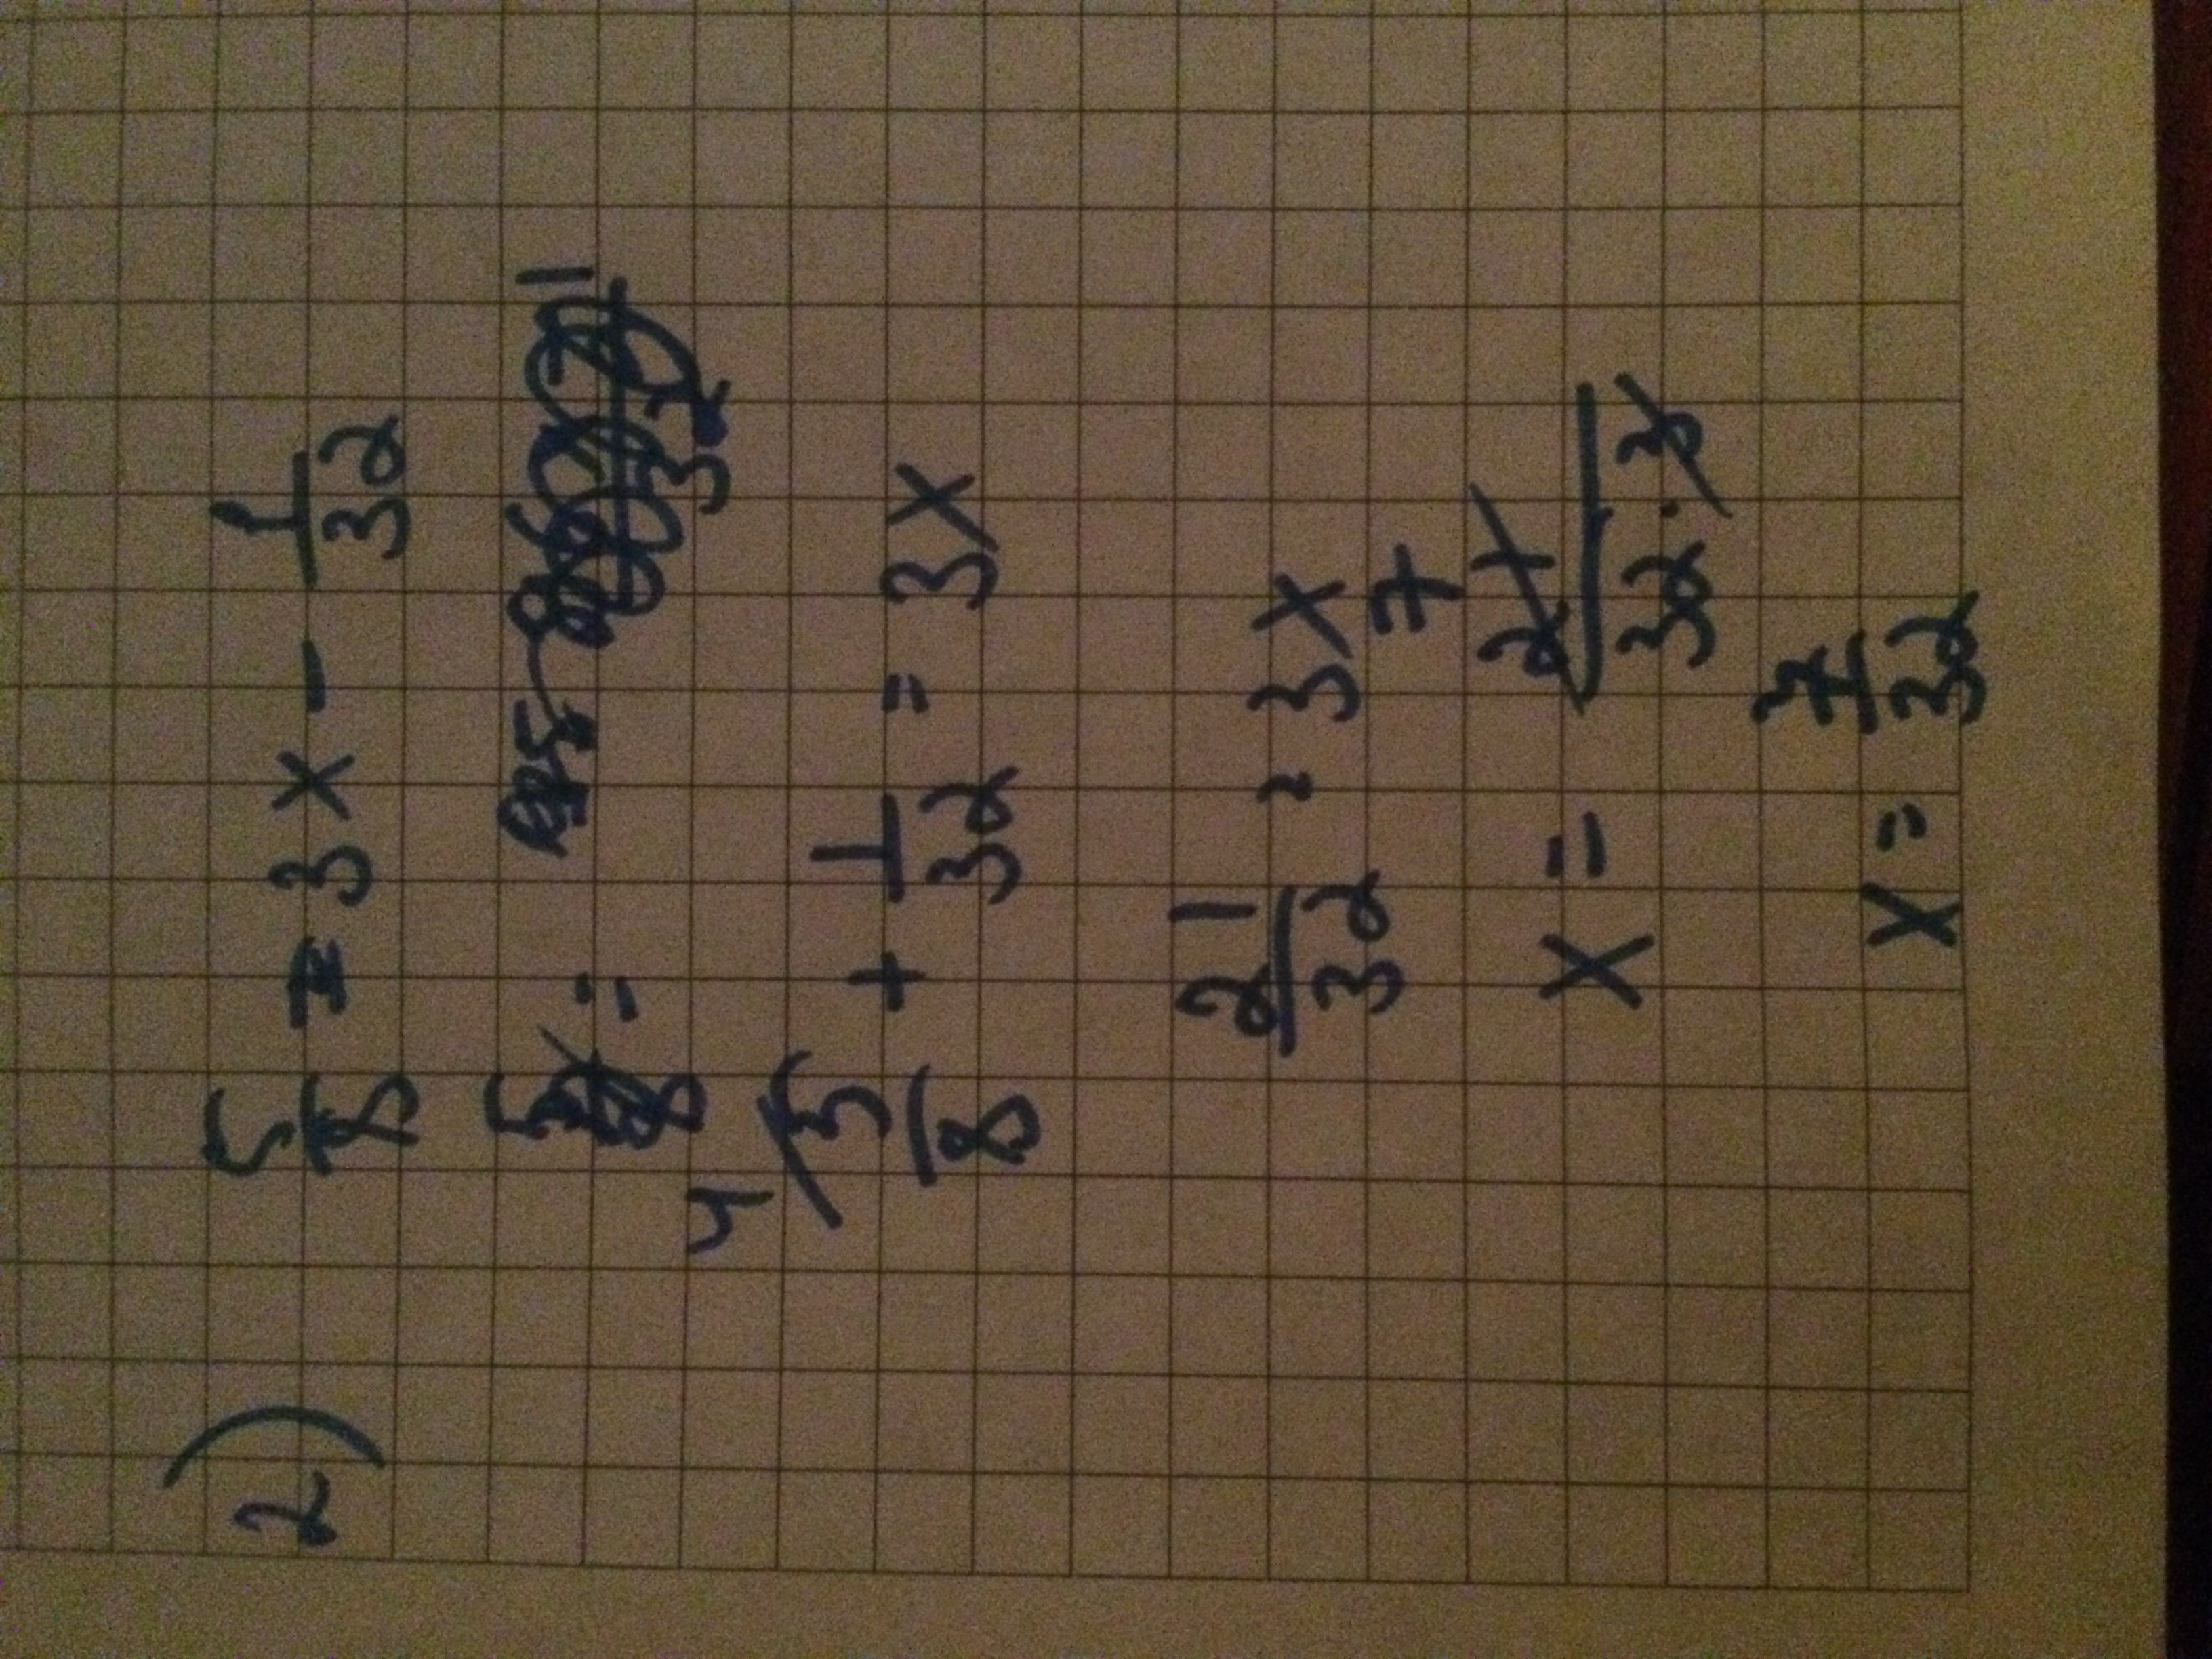 2) 5/8 = 3x - 1/32
5/8 =
4 5/8 + 1/32 = 3x
21/32 = 3x
x = 7 21/32·3
x = 7/32